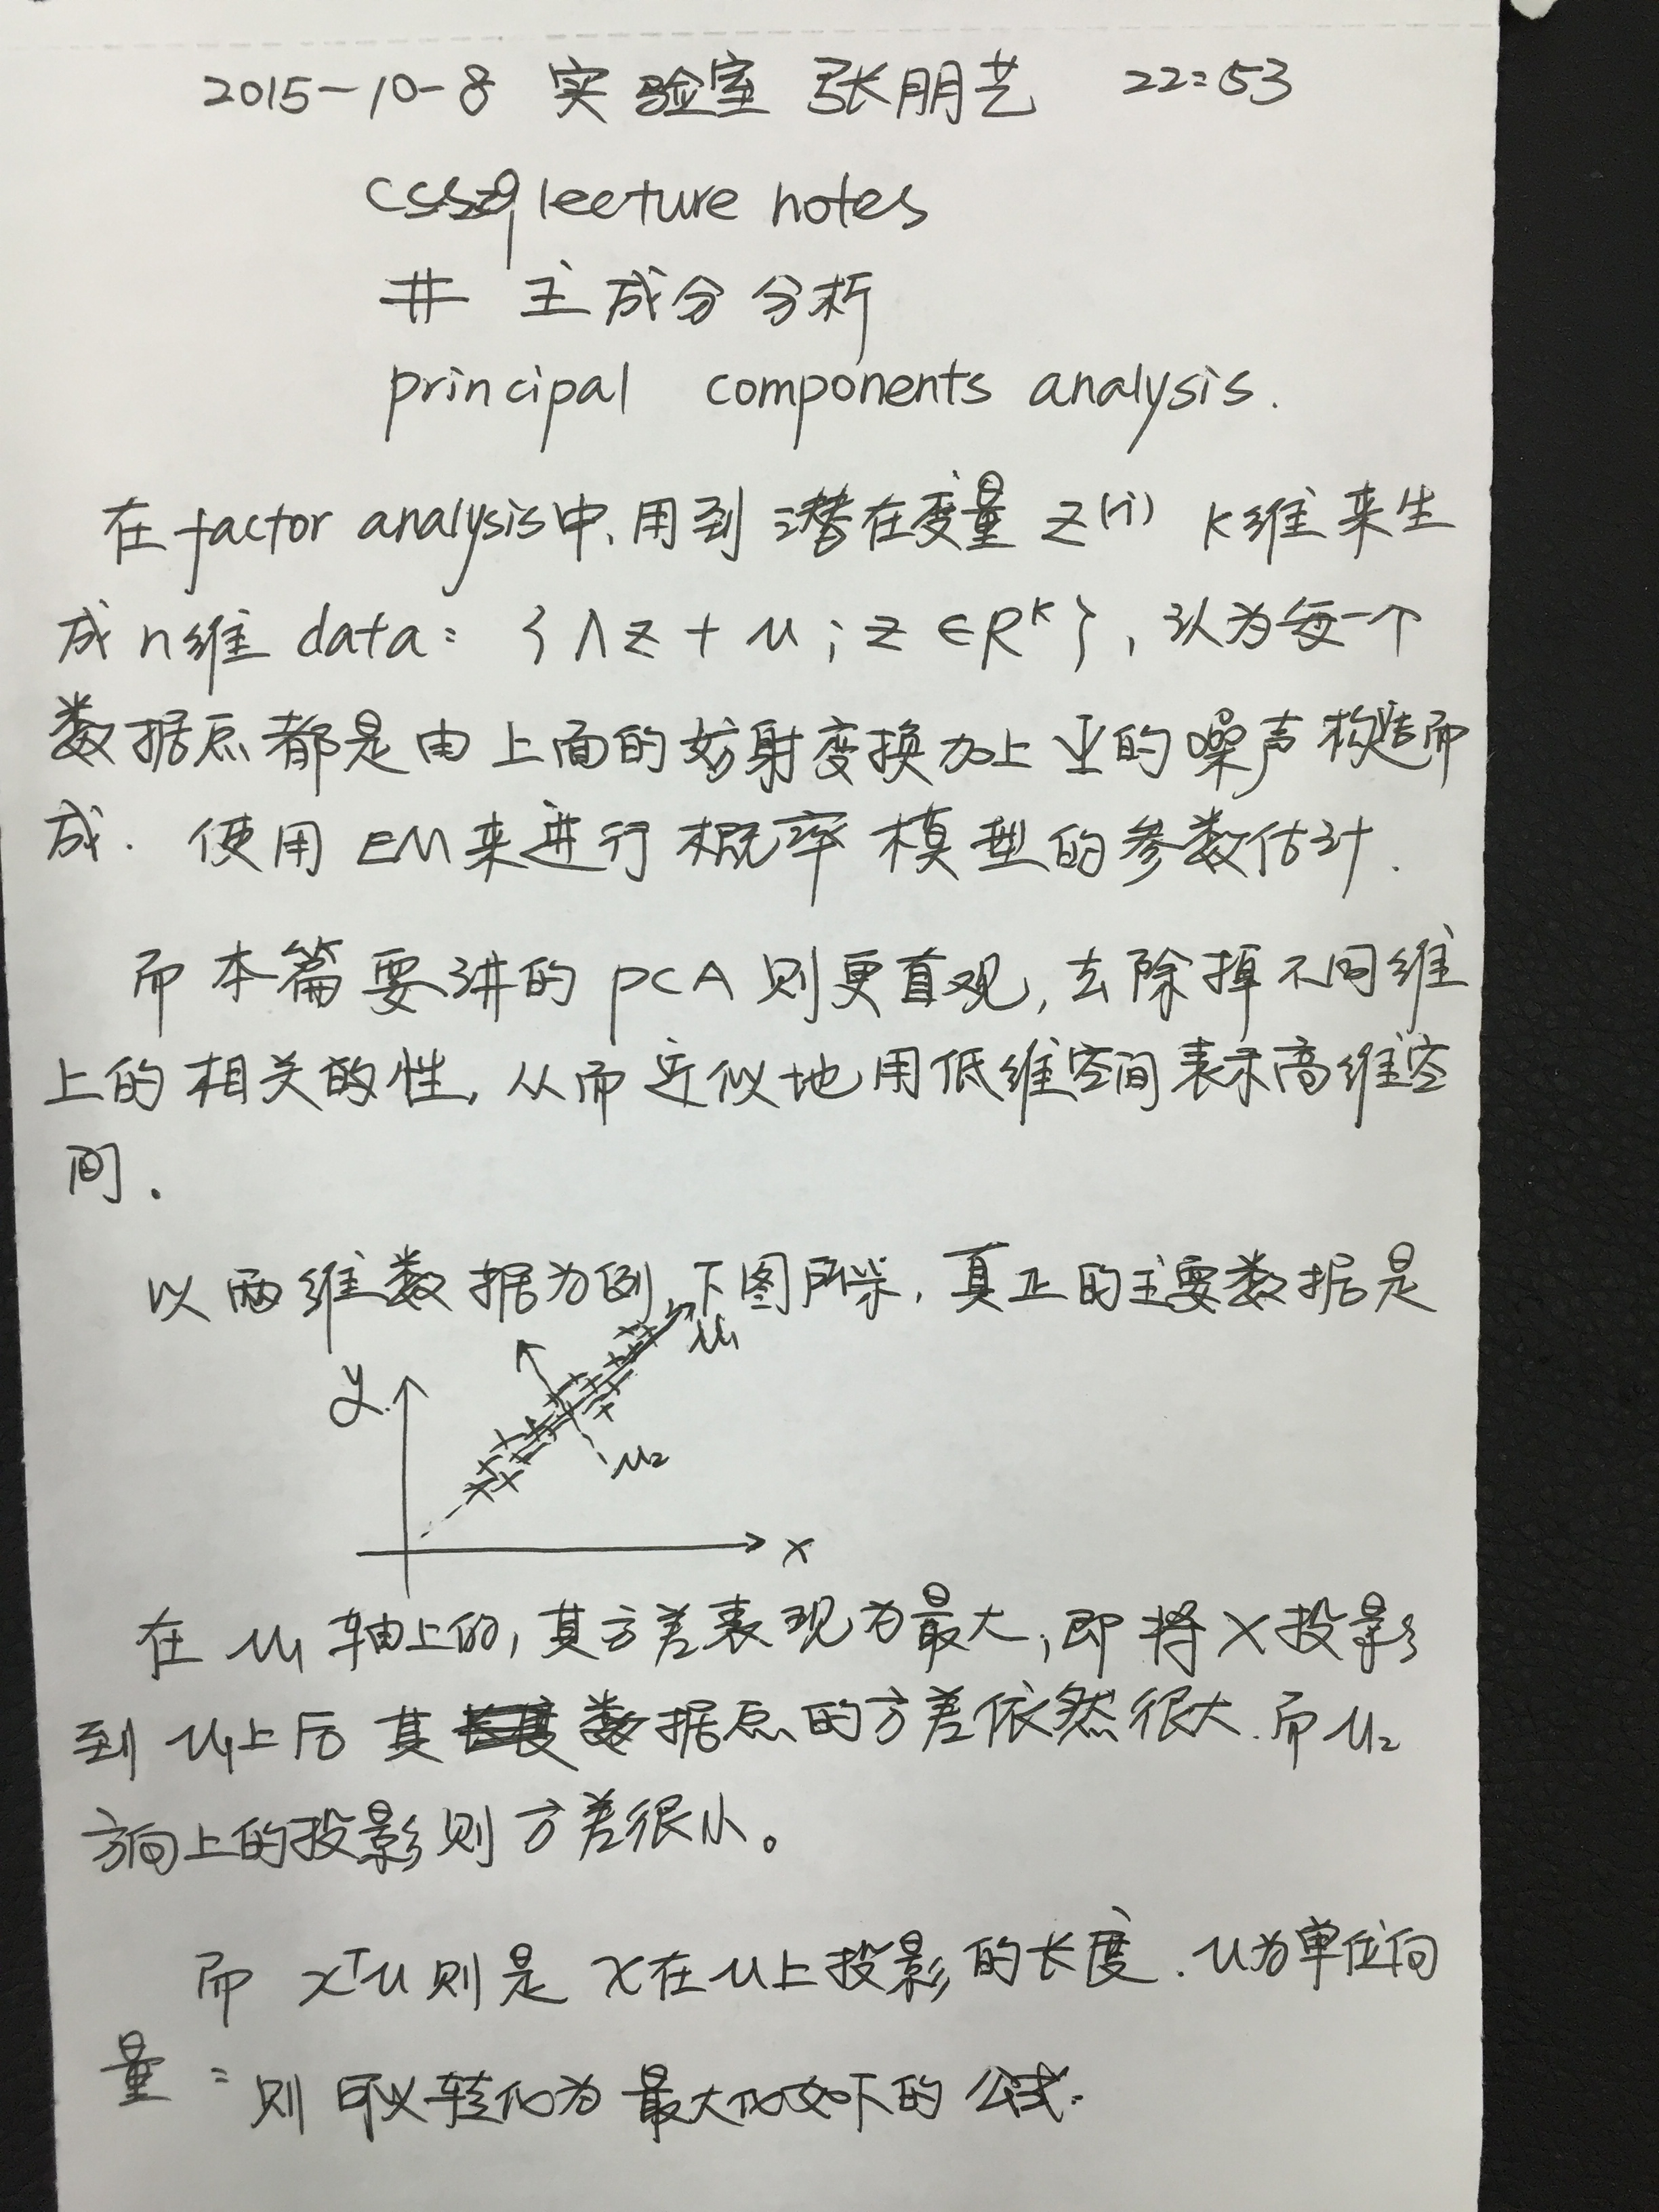 2015-10-8 实验室 张朋艺 22:53
cs229 lecture notes
# 主成分分析
principal components analysis.
在factor analysis中,用到潜在变量 z⁽ⁱ⁾ k维来生
成n维 data: {Λz + u; z ∈ Rᴷ}, 认为每一个
数据点都是由上面的仿射变换加上Ψ的噪声构造而
成. 使用EM来进行概率模型的参数估计.
而本篇要讲的PCA则更直观,去除掉不同维
上的相关的性,从而近似地用低维空间表示高维空
间.
以两维数据为例,下图所示,真正的主要数据是
y
u₁
u₂
x
在u₁轴上的,其方差表现为最大,即将X投影
到u₁上后其数据点的方差依然很大.而u₂
方向上的投影则方差很小。
而 xᵀu则是x在u上投影的长度.u为单位向
量:则可以转化为最大化如下的公式.